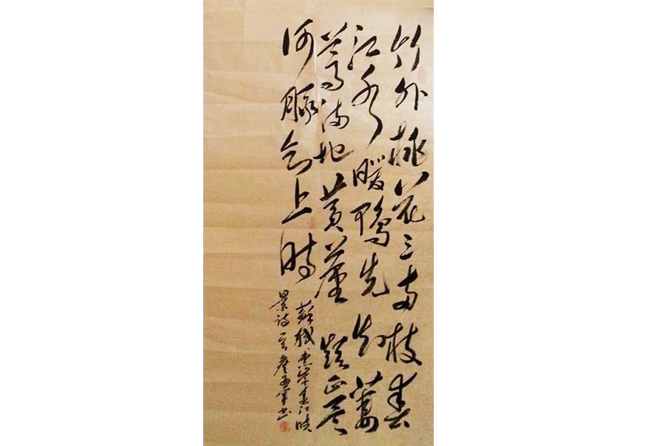 竹外桃花三两枝春
江水暖鸭先知蒌
蒿满地芦芽短正是
河豚欲上时
苏轼惠崇春江晚
景诗